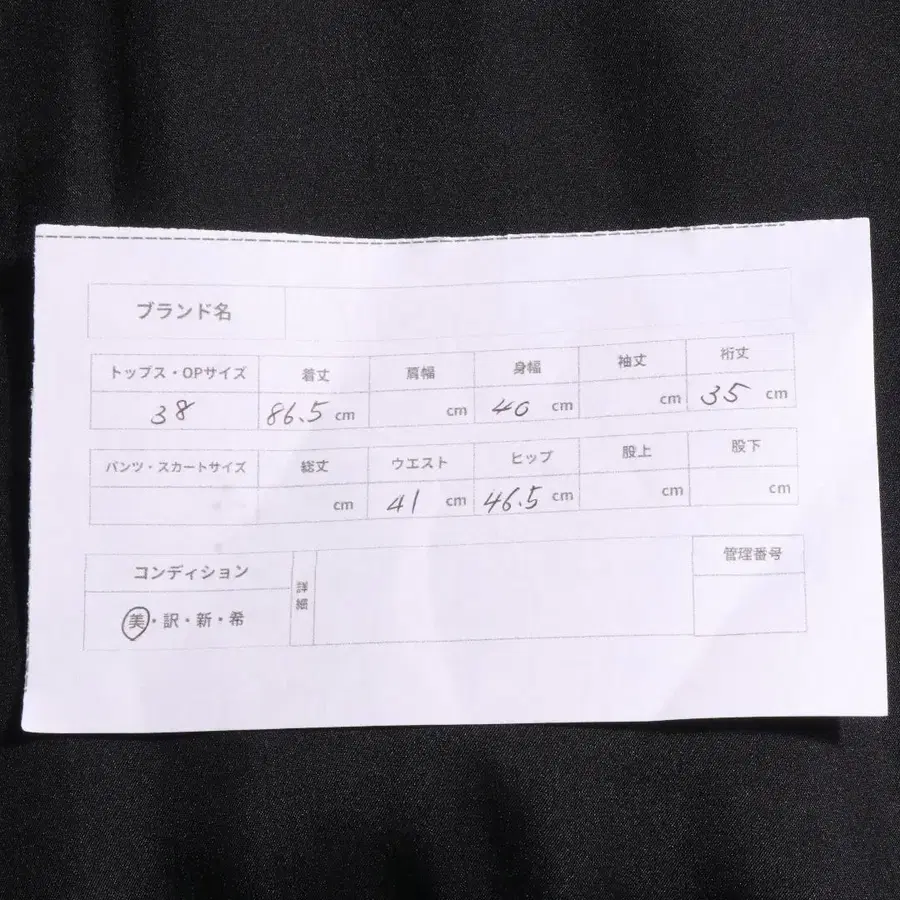 ブランド名
トップス・OPサイズ 着丈 肩幅 身幅 袖丈 裄丈
38 86.5 cm cm 40 cm cm 35 cm
パンツ・スカートサイズ 総丈 ウエスト ヒップ 股上 股下
cm 41 cm 46.5 cm cm cm
コンディション 詳細 管理番号
美・訳・新・希